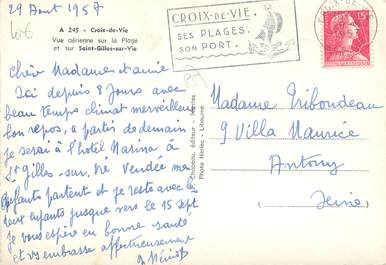 29 Aout 1957
A 245 - Croix-de-Vie
Vue aérienne sur la Plage
et sur Saint-Gilles-sur-Vie
CROIX-DE-VIE.
SES PLAGES.
SON PORT.
15F
Chère Madame et amie
Ici depuis 8 Jours avec
beau temps climat merveilleux
bon repos, a partir de demain
je serai à l'hôtel Marina à
St Gilles-sur-Vie Vendée mes
enfants partent et je reste avec
deux enfants jusque vers le 15 Sept
Je vous espère en bonne santé
et vous embrasse affectueusement
Madame Triboudeau
9 Villa Maurice
Antony
Seine
éditeur - Nantes
Photo